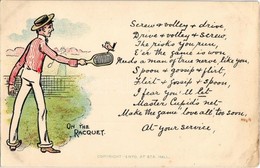 Screw & volley & drive,
Drive & volley & Screw,
The risks you run,
E'er the game is won
Needs a man of true nerve like you,
Spoon & gossip & flirt,
Flirt & Gossip & Spoon,
I fear you'll let
Master Cupid's net
Make the game love all too soon,
At your service,
ON THE
RACQUET.
COPYRIGHT